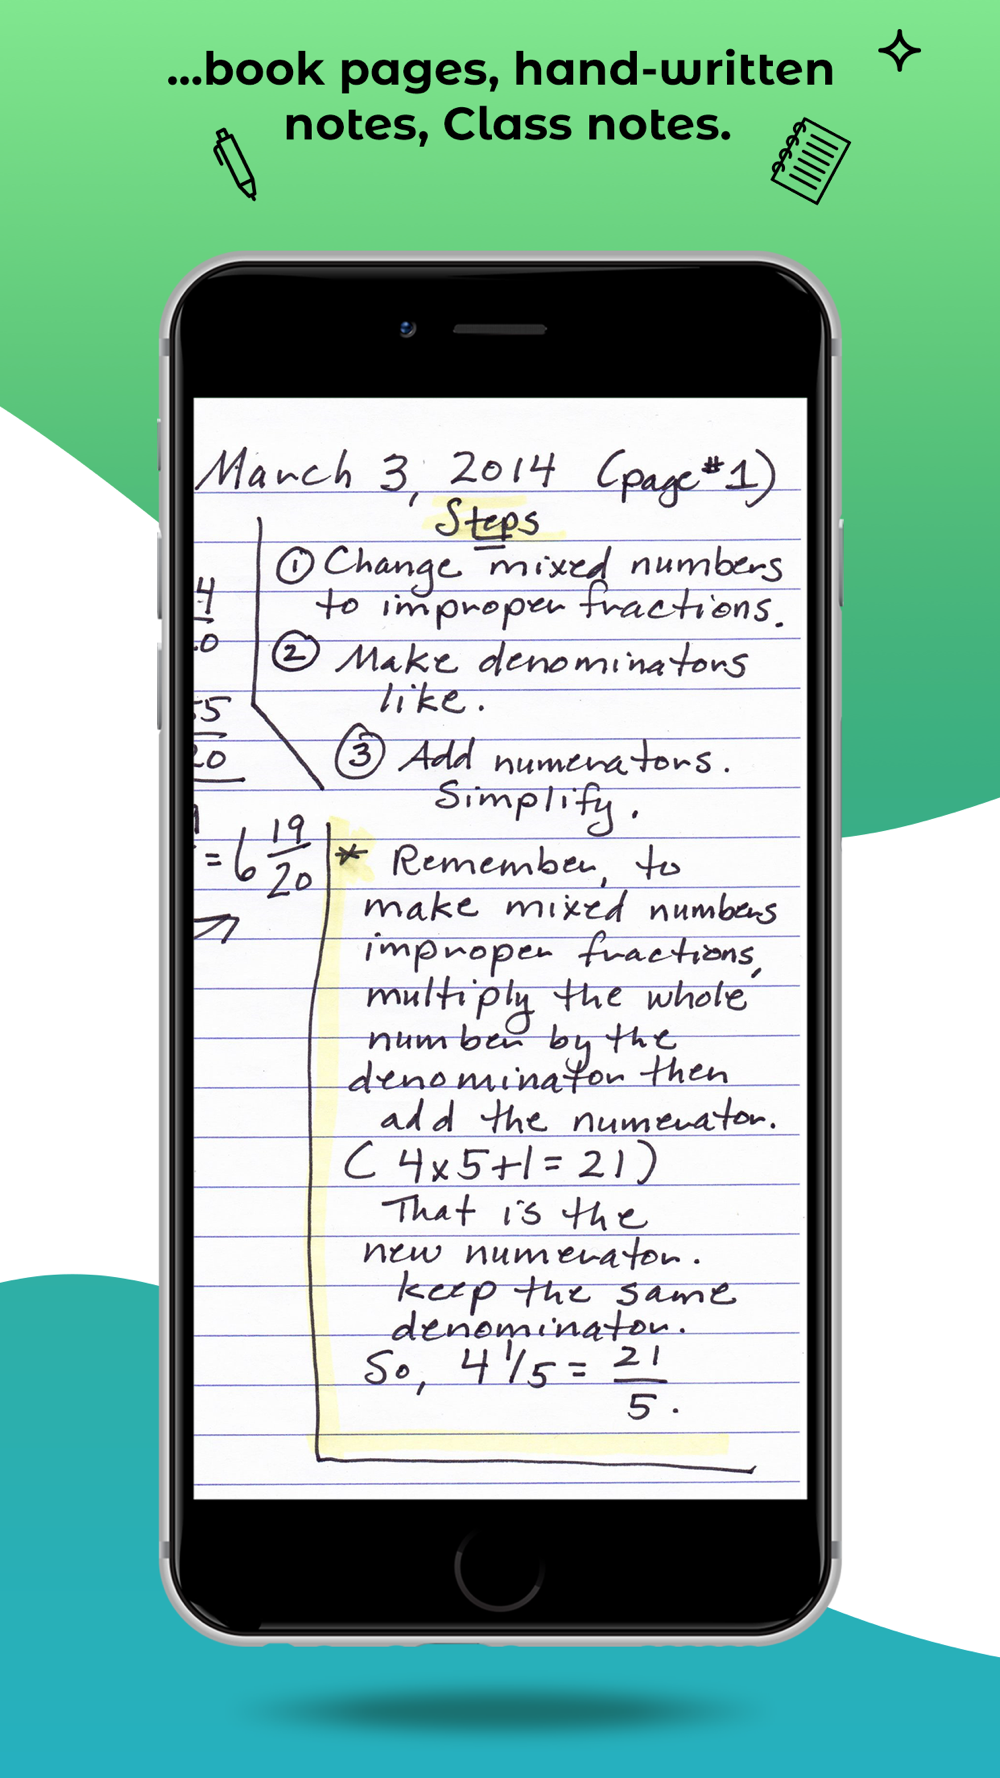 ...book pages, hand-written
notes, Class notes.
March 3, 2014 (page #1)
Steps
① Change mixed numbers
to improper fractions.
② Make denominators
like.
③ Add numerators.
Simplify.
4
20
= 6 19/20
* Remember, to
make mixed numbers
improper fractions,
multiply the whole
number by the
denominator then
add the numerator.
( 4x5+1 = 21 )
That is the
new numerator.
keep the same
denominator.
So, 4 1/5 = 21/5.